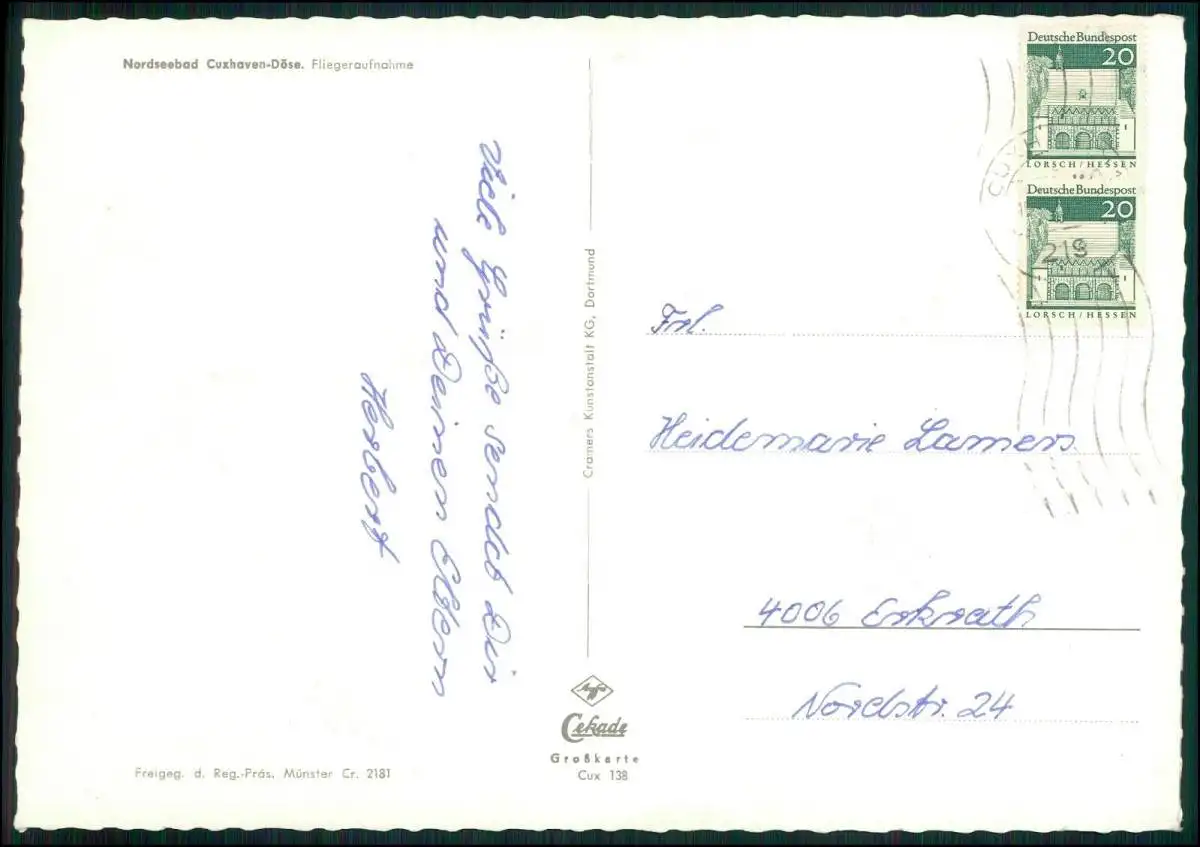 Nordseebad Cuxhaven-Döse. Fliegeraufnahme
Viele Grüße sendet Dir
und Deinen Eltern
Herbert
Freigeg. d. Reg.-Präs. Münster Cr. 2181
Cramers Kunstanstalt KG, Dortmund
Agfa
Cekade
Großkarte
Cux 138
Deutsche Bundespost
20
LORSCH/HESSEN
Deutsche Bundespost
20
LORSCH/HESSEN
219
Frl.
Heidemarie Lamers
4006 Erkrath
Nordstr. 24